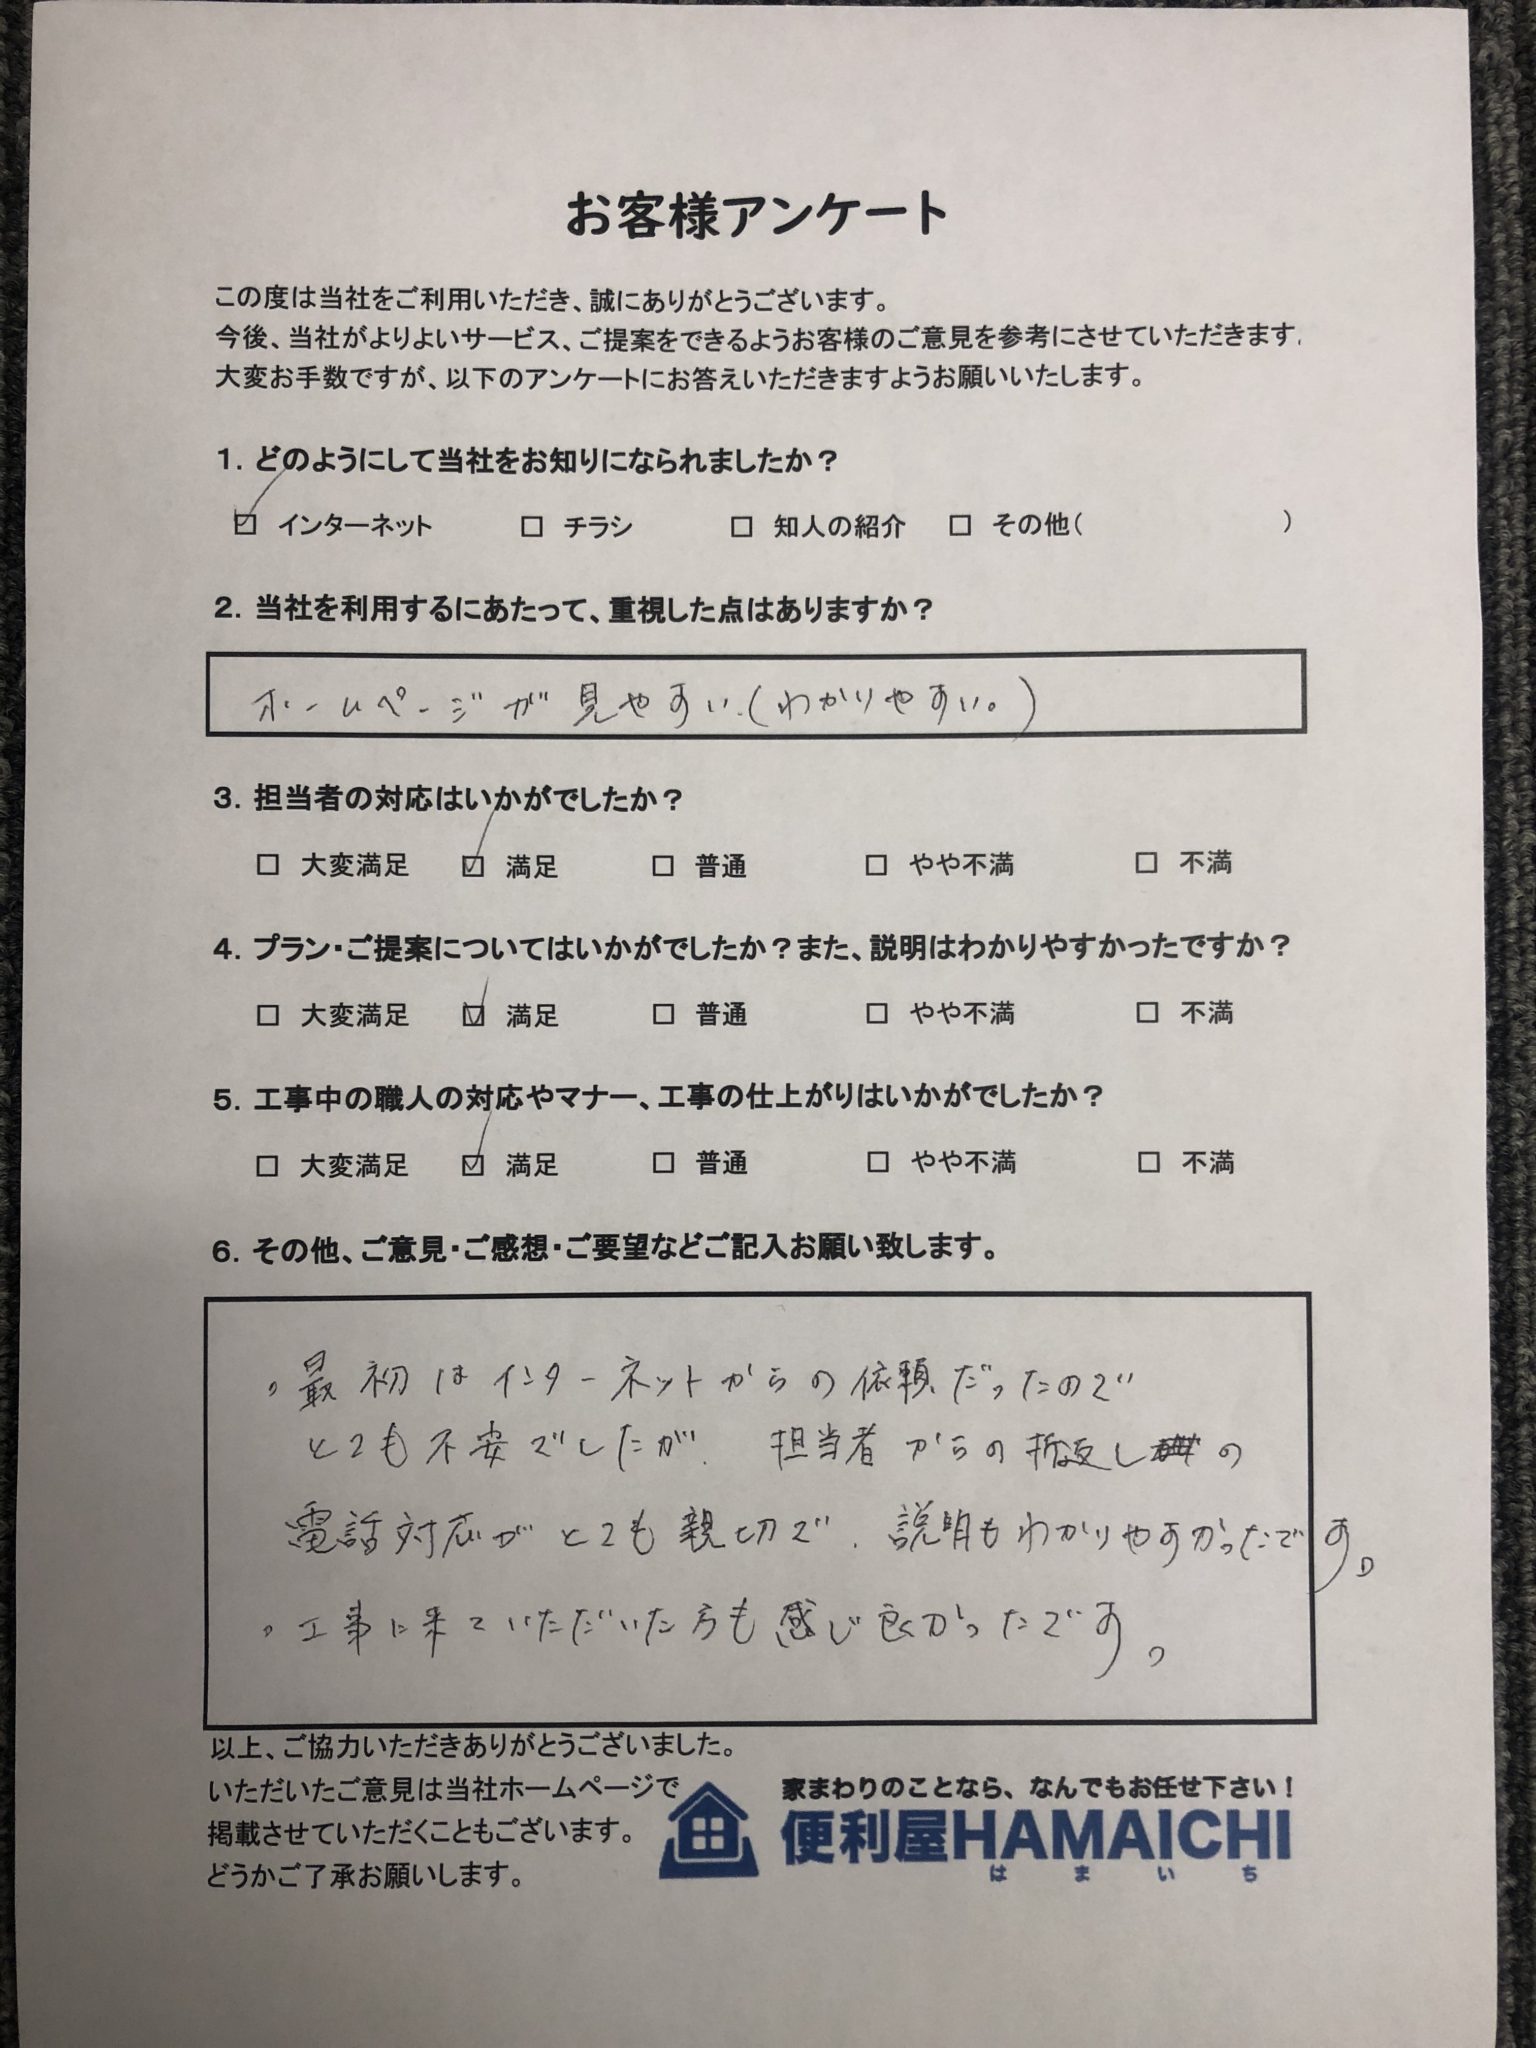 お客様アンケート
この度は当社をご利用いただき、誠にありがとうございます。
今後、当社がよりよいサービス、ご提案をできるようお客様のご意見を参考にさせていただきます。
大変お手数ですが、以下のアンケートにお答えいただきますようお願いいたします。
1. どのようにして当社をお知りになられましたか？
☑ インターネット □ チラシ □ 知人の紹介 □ その他( )
2. 当社を利用するにあたって、重視した点はありますか？
ホームページが見やすい.(わかりやすい。)
3. 担当者の対応はいかがでしたか？
□ 大変満足 ☑ 満足 □ 普通 □ やや不満 □ 不満
4. プラン・ご提案についてはいかがでしたか？また、説明はわかりやすかったですか？
□ 大変満足 ☑ 満足 □ 普通 □ やや不満 □ 不満
5. 工事中の職人の対応やマナー、工事の仕上がりはいかがでしたか？
□ 大変満足 ☑ 満足 □ 普通 □ やや不満 □ 不満
6. その他、ご意見・ご感想・ご要望などご記入お願い致します。
。最初はインターネットからの依頼だったので
とても不安でしたが、担当者からの折返しの
電話対応がとても親切で、説明もわかりやすかったです。
。工事に来ていただいた方も感じ良かったです。
以上、ご協力いただきありがとうございました。
いただいたご意見は当社ホームページで
掲載させていただくこともございます。
どうかご了承お願いします。
家まわりのことなら、なんでもお任せ下さい！
便利屋HAMAICHI
はまいち